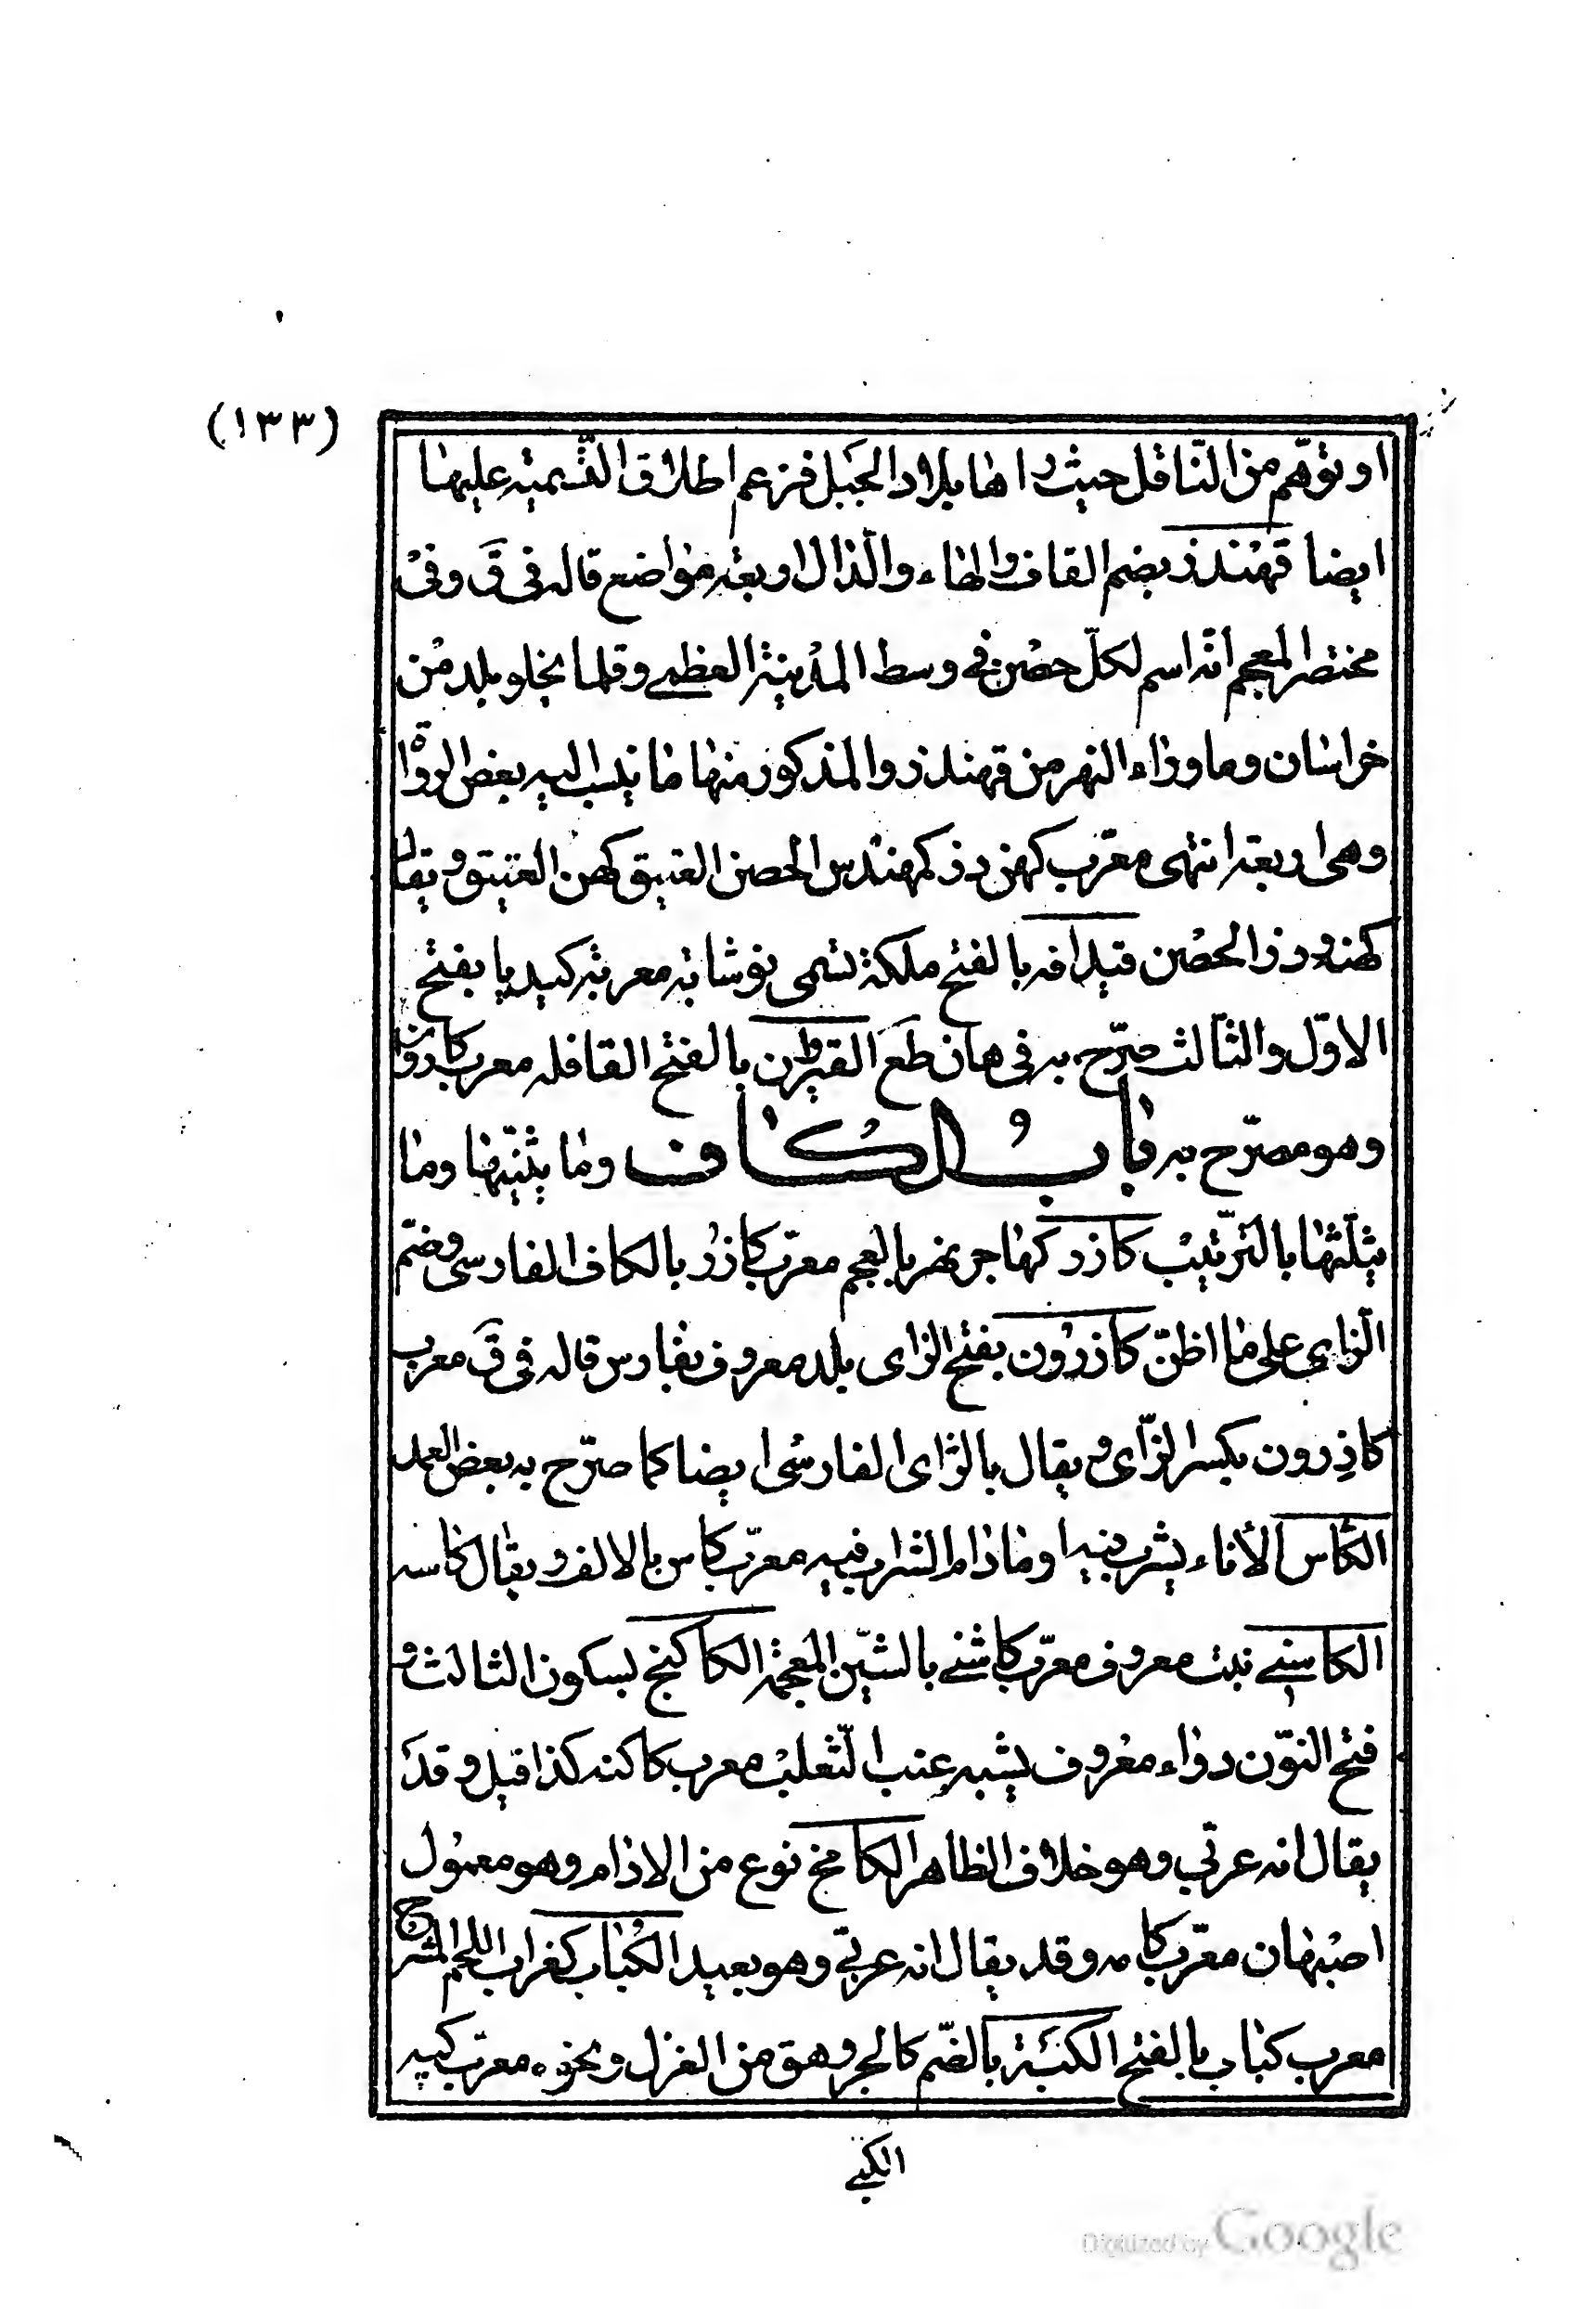 (١٣٣)
او توهّم من النّاقل حيث راها بلاد الجبل فزعم اطلاق التّسمية عليها
ايضا قهندز بضم القاف والهاء والذال اربعة مواضع قاله فى ق وفى
مختصر المعجم انّه اسم لكلّ حصن فى وسط المدينة العظمى وقلما يخلو بلد من
خراسان وما وراء النهر من قهندز والمذكور منها ما ينسب اليه بعض الرواة
وهى اربعة انتهى معرّب كهن دز كمهندس الحصن العتيق كهن العتيق ويقال
كهنه ودز الحصن قيدافه بالفتح ملكة تسمى نوشابه معربة كيديا بفتح
الاوّل والثالث صرّح به فى هان طع القيروان بالفتح القافله معرب كاروان
وهو مصرّح به باب الكاف وما يثنّيها وما
يثلّثها بالترتيب كازر كهاجر نهر بالعجم معرّب كازر بالكاف الفارسى وضمّ
الزاى على ما اظنّ كازرون بفتح الزاى بلد معروف بفارس قاله فى ق معرب
كازِرون بكسر الزّاى ويقال بالزاى الفارسى ايضا كما صرّح به بعض العلماء
الكأس الأناء يشرب فيه او ما دام الشراب فيه معرّب كاس بالالف ويقال كاسه
الكاسنى نبت معروف معرّب كاشنى بالشّين المعجمة الكاكنج بسكون الثالث و
فتح النوّن دواء معروف يشبه عنب الثّعلب معرب كاكنه كذا قيل وقد
يقال انه عربّى وهو خلاف الظاهر الكامخ نوع من الادام وهو معمول
اصبهان معرّب كامه وقد يقال انه عربّى وهو بعيد الكباب كغراب اللحم المشرح
معرب كباب بالفتح الكبّة بالضّم كالجروهق من الغزل ونحوه معرّب كبه
الكبى
Digitized by Google